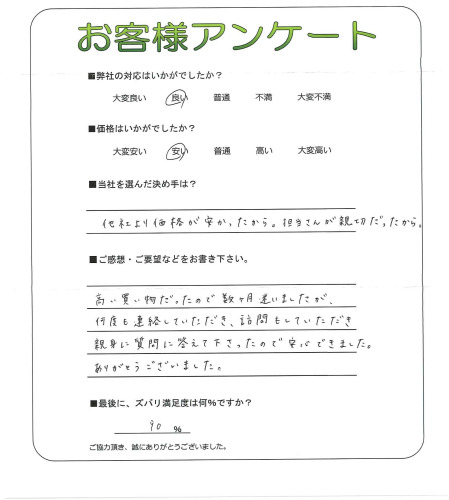 お客様アンケート
■弊社の対応はいかがでしたか？
大変良い 良い 普通 不満 大変不満
■価格はいかがでしたか？
大変安い 安い 普通 高い 大変高い
■当社を選んだ決め手は？
他社より価格が安かったから。担当さんが親切だったから。
■ご感想・ご要望などをお書き下さい。
高い買い物だったので数ヶ月迷いましたが、
何度も連絡していただき、訪問もしていただき
親身に質問に答えて下さったので安心できました。
ありがとうございました。
■最後に、ズバリ満足度は何%ですか？
90 %
ご協力頂き、誠にありがとうございました。